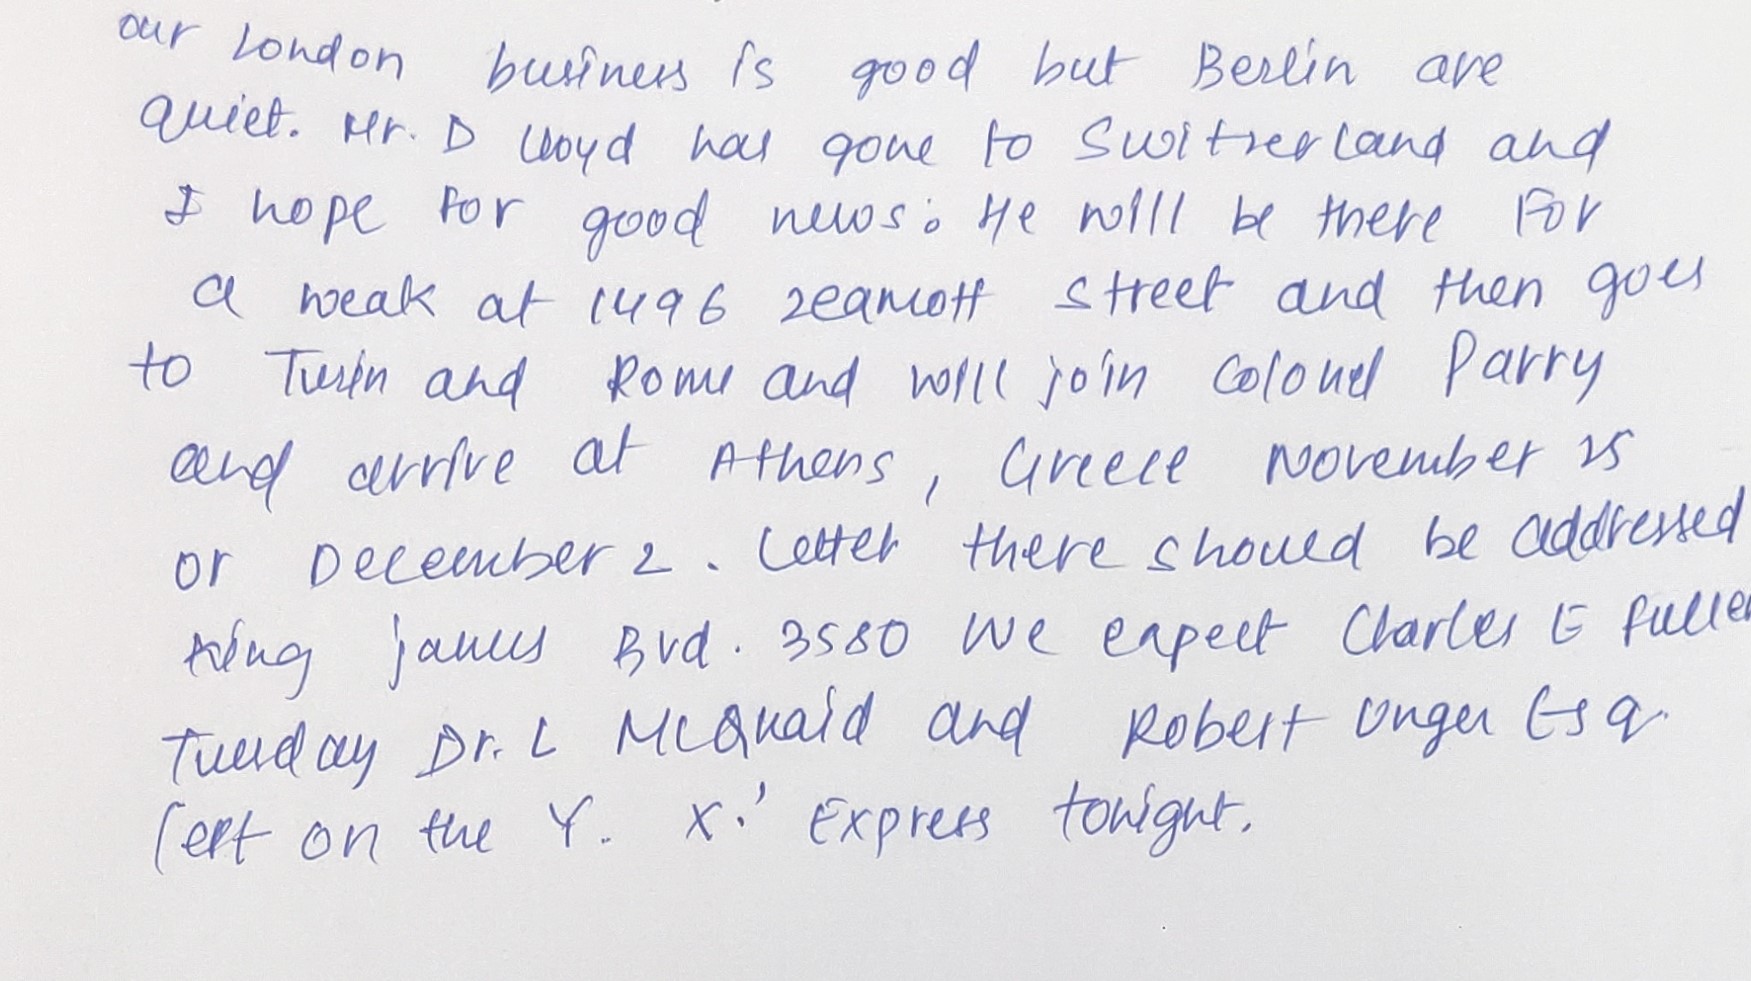 our London business is good but Berlin are
quiet. Mr. D Lloyd has gone to Switzerland and
I hope for good news. He will be there for
a weak at 1496 zeamott street and then goes
to Turin and Rome and will join Colonel Parry
and arrive at Athens, Greece November 25
or December 2. Letter there should be addressed
King James Bvd. 3580 We expect Charles E Fuller
Tuesday Dr. L McQuaid and Robert Unger Esq.
left on the Y. X.' Express tonight.